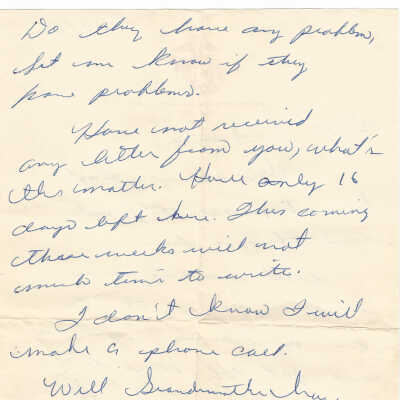 Do they have any problem,
let me know if they
have problems.
Have not received
any letter from you, what's
the matter. Have only 16
days left here. This coming
these weeks will not
much time to write.
I don't know I will
make a phone call.
Will Grandmother